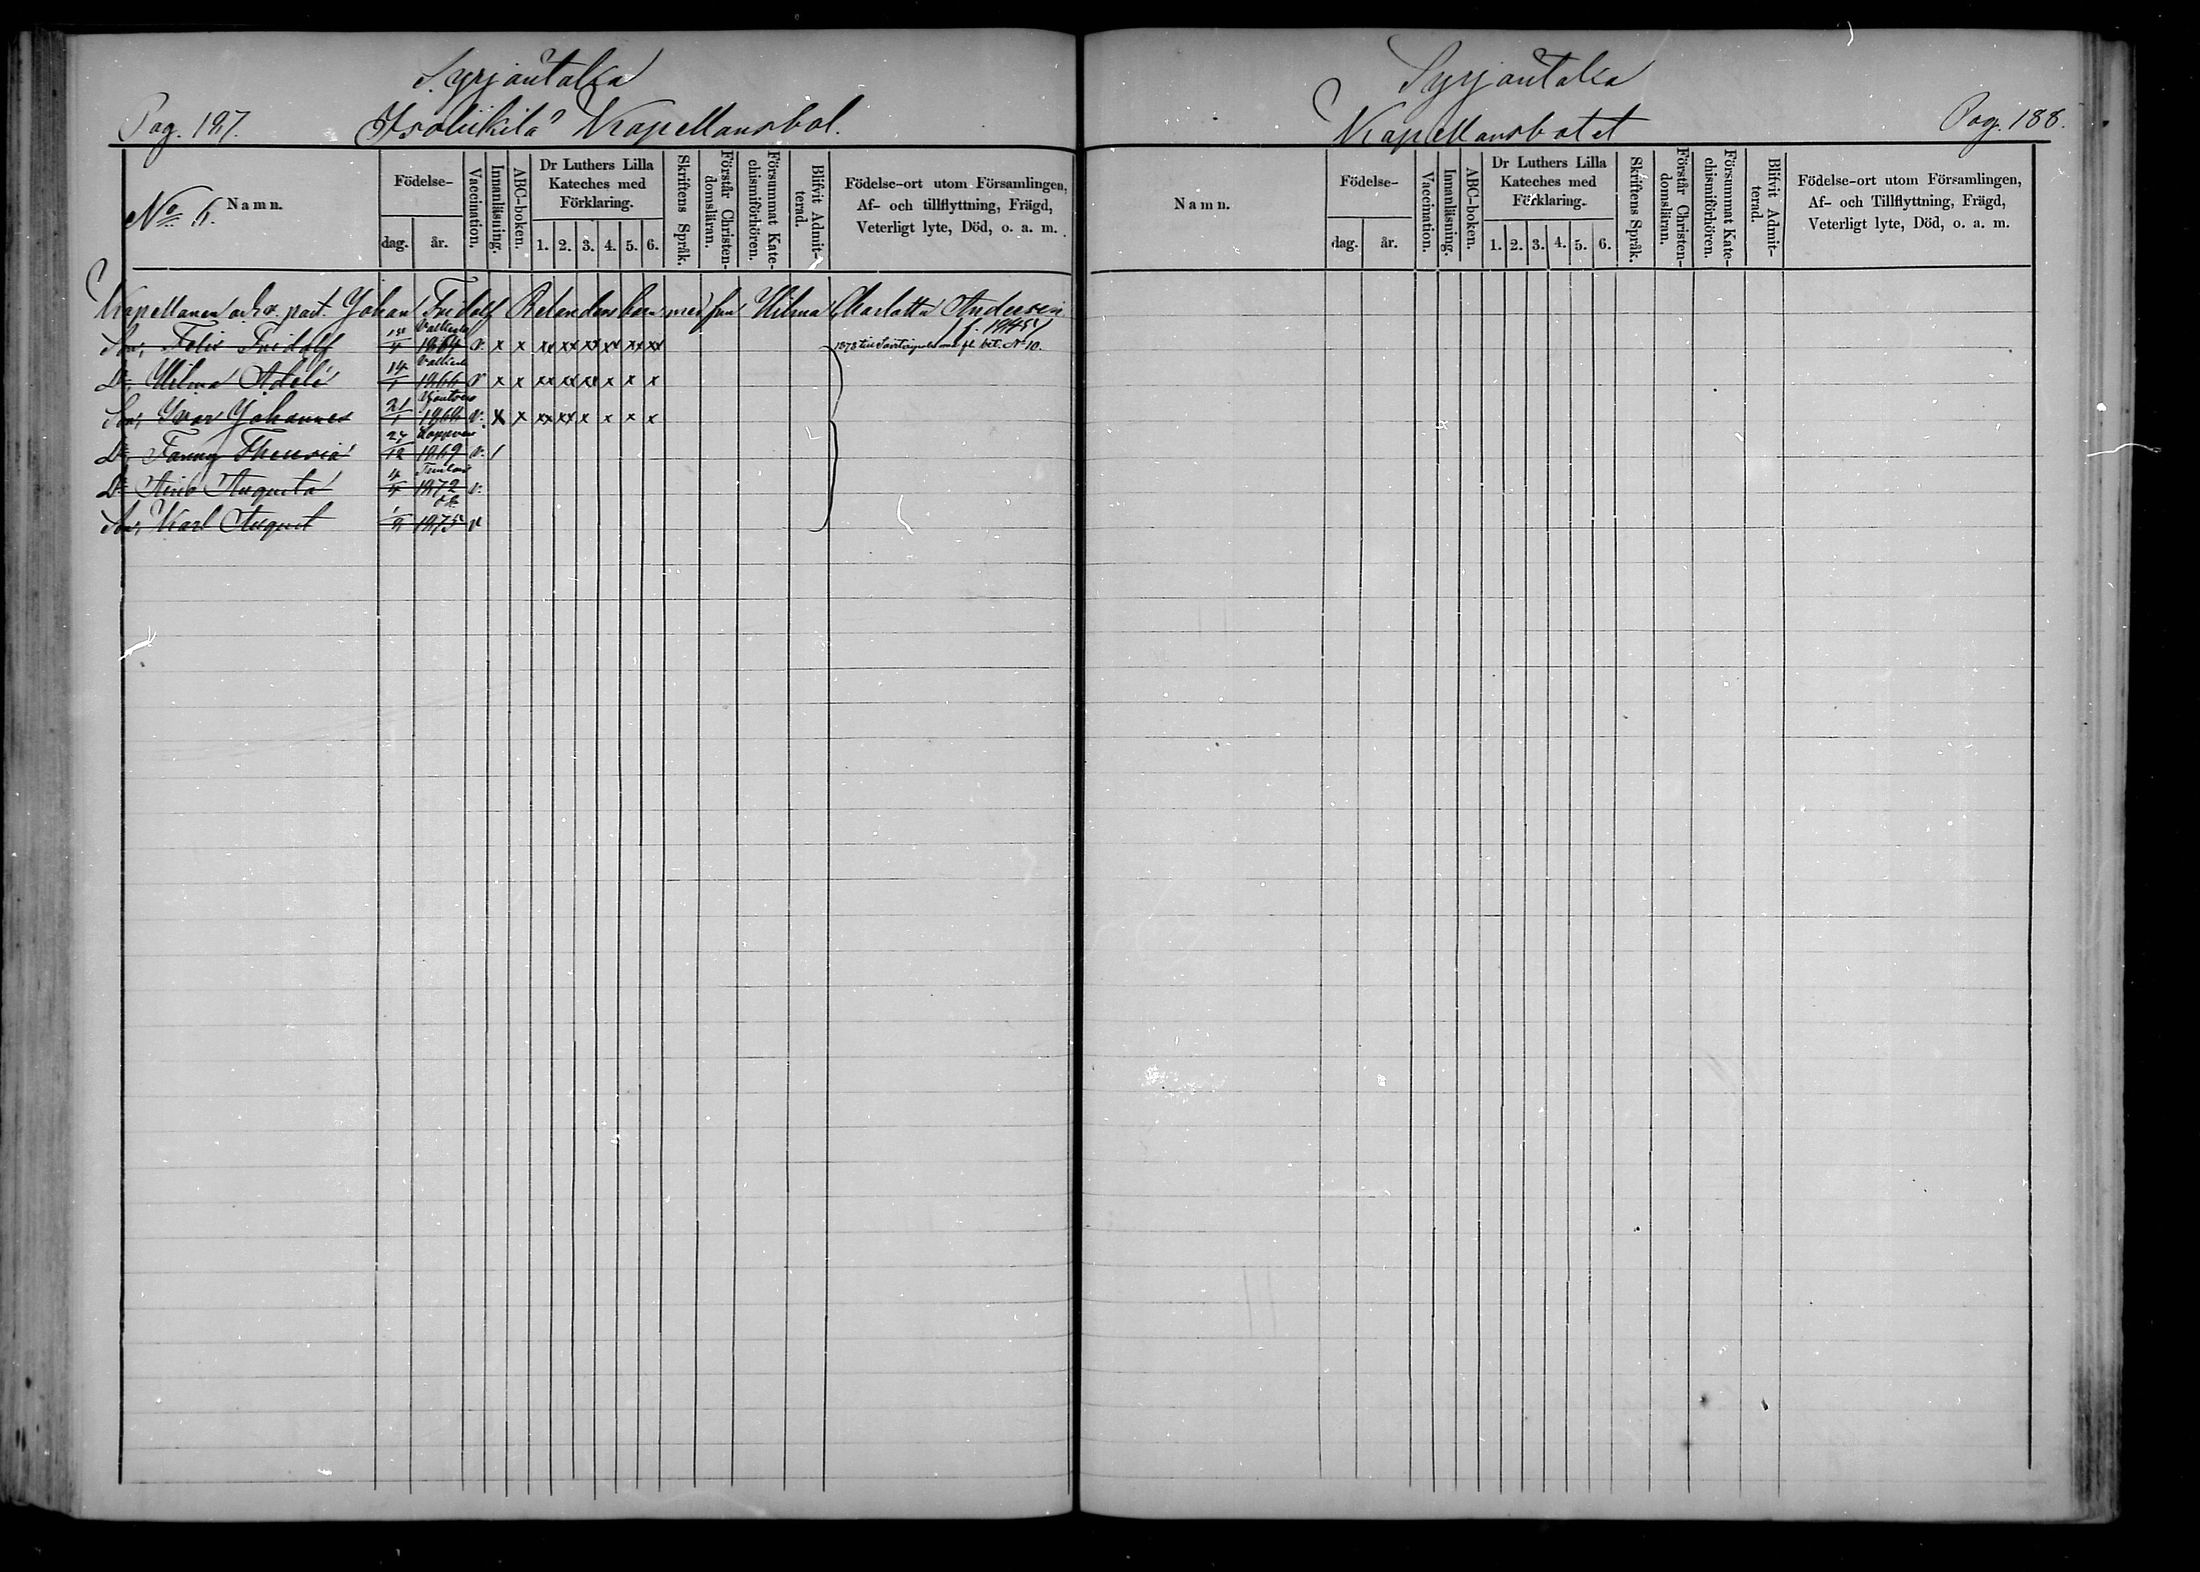 Syrjäntaka
Pag. 187. Kapellansbol.
No 6. Namn.
Födelse-
dag. år.
Vaccination.
Innanläsning.
ABC-boken.
Dr Luthers Lilla
Kateches med
Förklaring.
1. 2. 3. 4. 5. 6.
Skriftens Språk.
Förstår Christen-
domsläran.
Försummat Kate-
chismiförhören.
Blifvit Admit-
terad.
Födelse-ort utom Församlingen,
Af- och tillflyttning, Frägd,
Veterligt lyte, Död, o. a. m.
Kapellanen Johan Fridolf Relanders barn med fru Wilma Charlotta Andersin
f. 1845
Son, Felix Fridolf 1864 v. x x xx xx xx xx xx xx 1878 till N:o 10.
Dr Wilma Adéle 14 1866 v x x xx xx xx x x x
Son, Ivar Johannes 21 1868 v. x x xx xx x x x x
Dr Fanny Theresia 27/12 1869 v. /
Dr Augusta 4 1872 v.
Son, Karl August 1875 v
Syrjäntaka
Kapellansbolet Pag. 188.
Namn.
Födelse-
dag. år.
Vaccination.
Innanläsning.
ABC-boken.
Dr Luthers Lilla
Kateches med
Förklaring.
1. 2. 3. 4. 5. 6.
Skriftens Språk.
Förstår Christen-
domsläran.
Försummat Kate-
chismiförhören.
Blifvit Admit-
terad.
Födelse-ort utom Församlingen,
Af- och Tillflyttning, Frägd,
Veterligt lyte, Död, o. a. m.